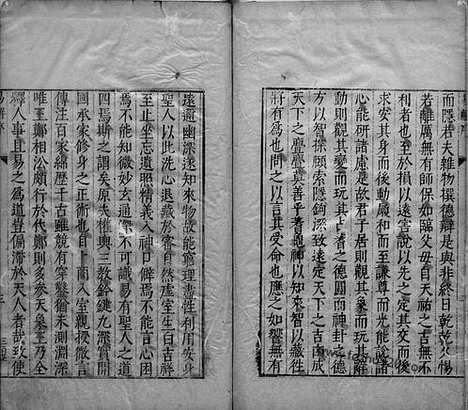 而隱若夫雜物撰德辯是與非終日乾乾夕惕
若厲無有師保如臨父母自天祐之吉無不
利者也至於損以遠害說以先之定其交而後
求安其身而後動履和而至謙尊而光能說諸
心能研諸慮是故君子居則觀其象而玩其辭
動則觀其變而玩其占蓍之德圓而神卦之德
方以智探賾索隱鉤深致遠定天下之吉凶成
天下之亹亹善乎蓍龜神以知來智以藏往
將有為也問之以言其受命也應之如響無有
遠邇幽深遂知來物故能窮理盡性利用安身
聖人以此洗心退藏於密自然虛室生白吉祥
至止坐忘遺照精義入神口僻焉不能言心困
焉不能知微妙玄通深不可識易有聖人之道
四焉斯之謂矣原夫權輿三教鈐鍵九流實開
國承家修身之正術也自卜商入室親授微言
傳注百家綿歷千古雖競有穿鑿猶未測淵深
唯王鄭相沿頗行於代鄭則多參天象王乃全
釋人事且易之為道豈偏滯於天人者哉致使